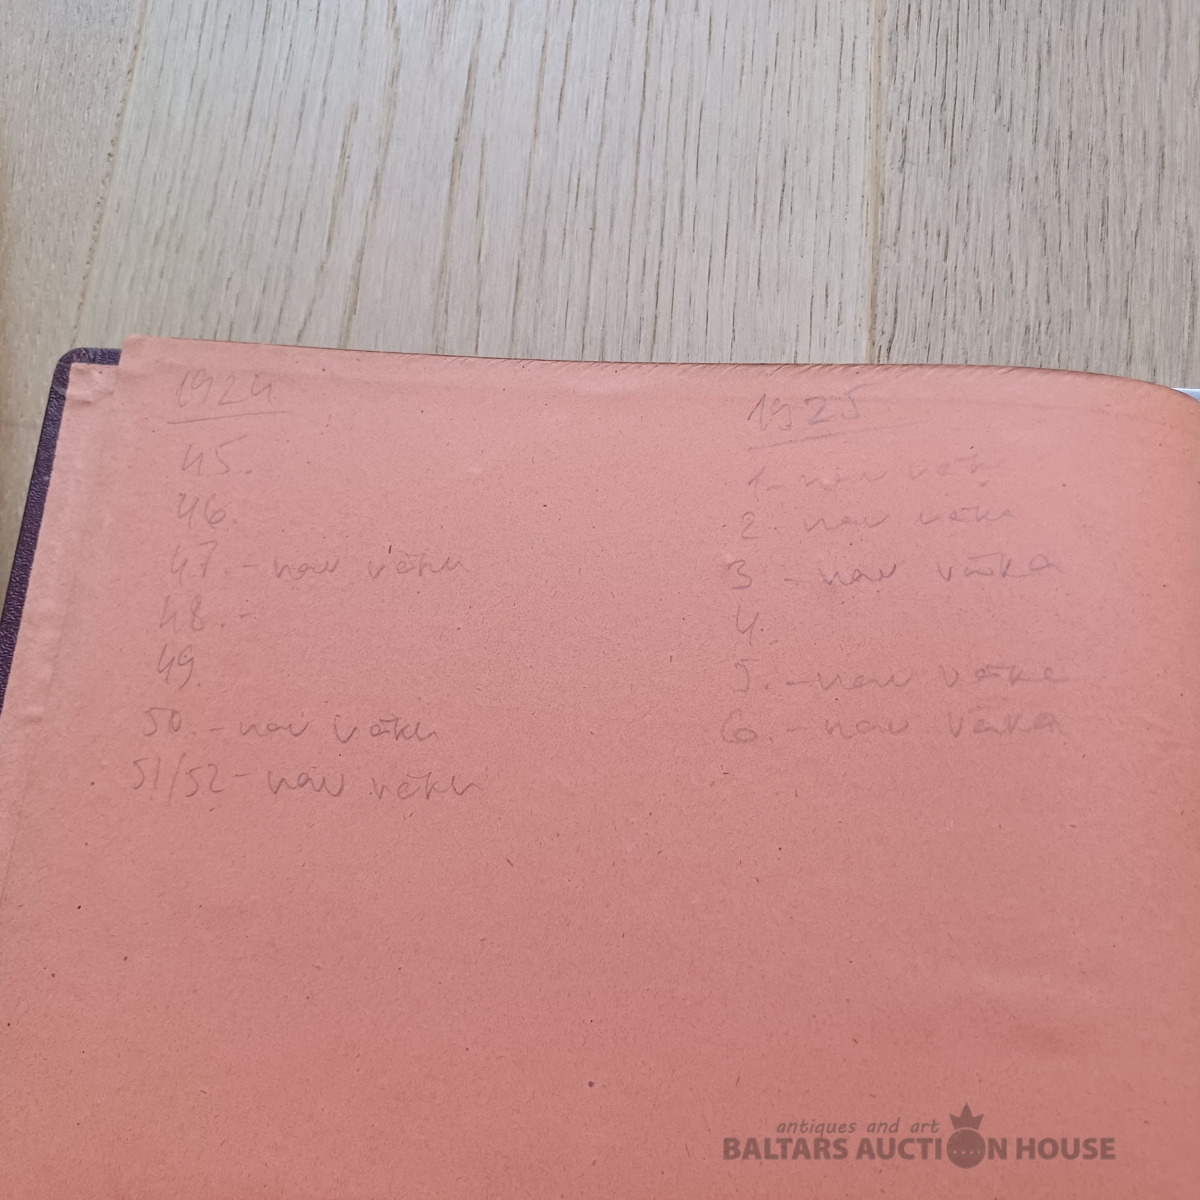 1924.
45.
46.
47. - nav vāku
48. -
49.
50. - nav vāku
51/52 - nav vāku
1925
1 - nav vāka
2 - nav vāka
3 - nav vāka
4.
5. - nav vāka
6. - nav vāka
antiques and art
BALTARS AUCTION HOUSE